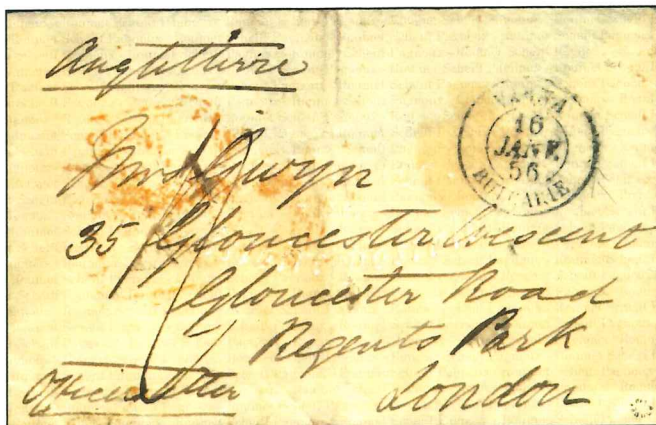 Angleterre
VARNA
16
JANV.
56
BULGARIE
Mrs Gwyn
35 Gloucester Crescent
Gloucester Road
Regents Park
London